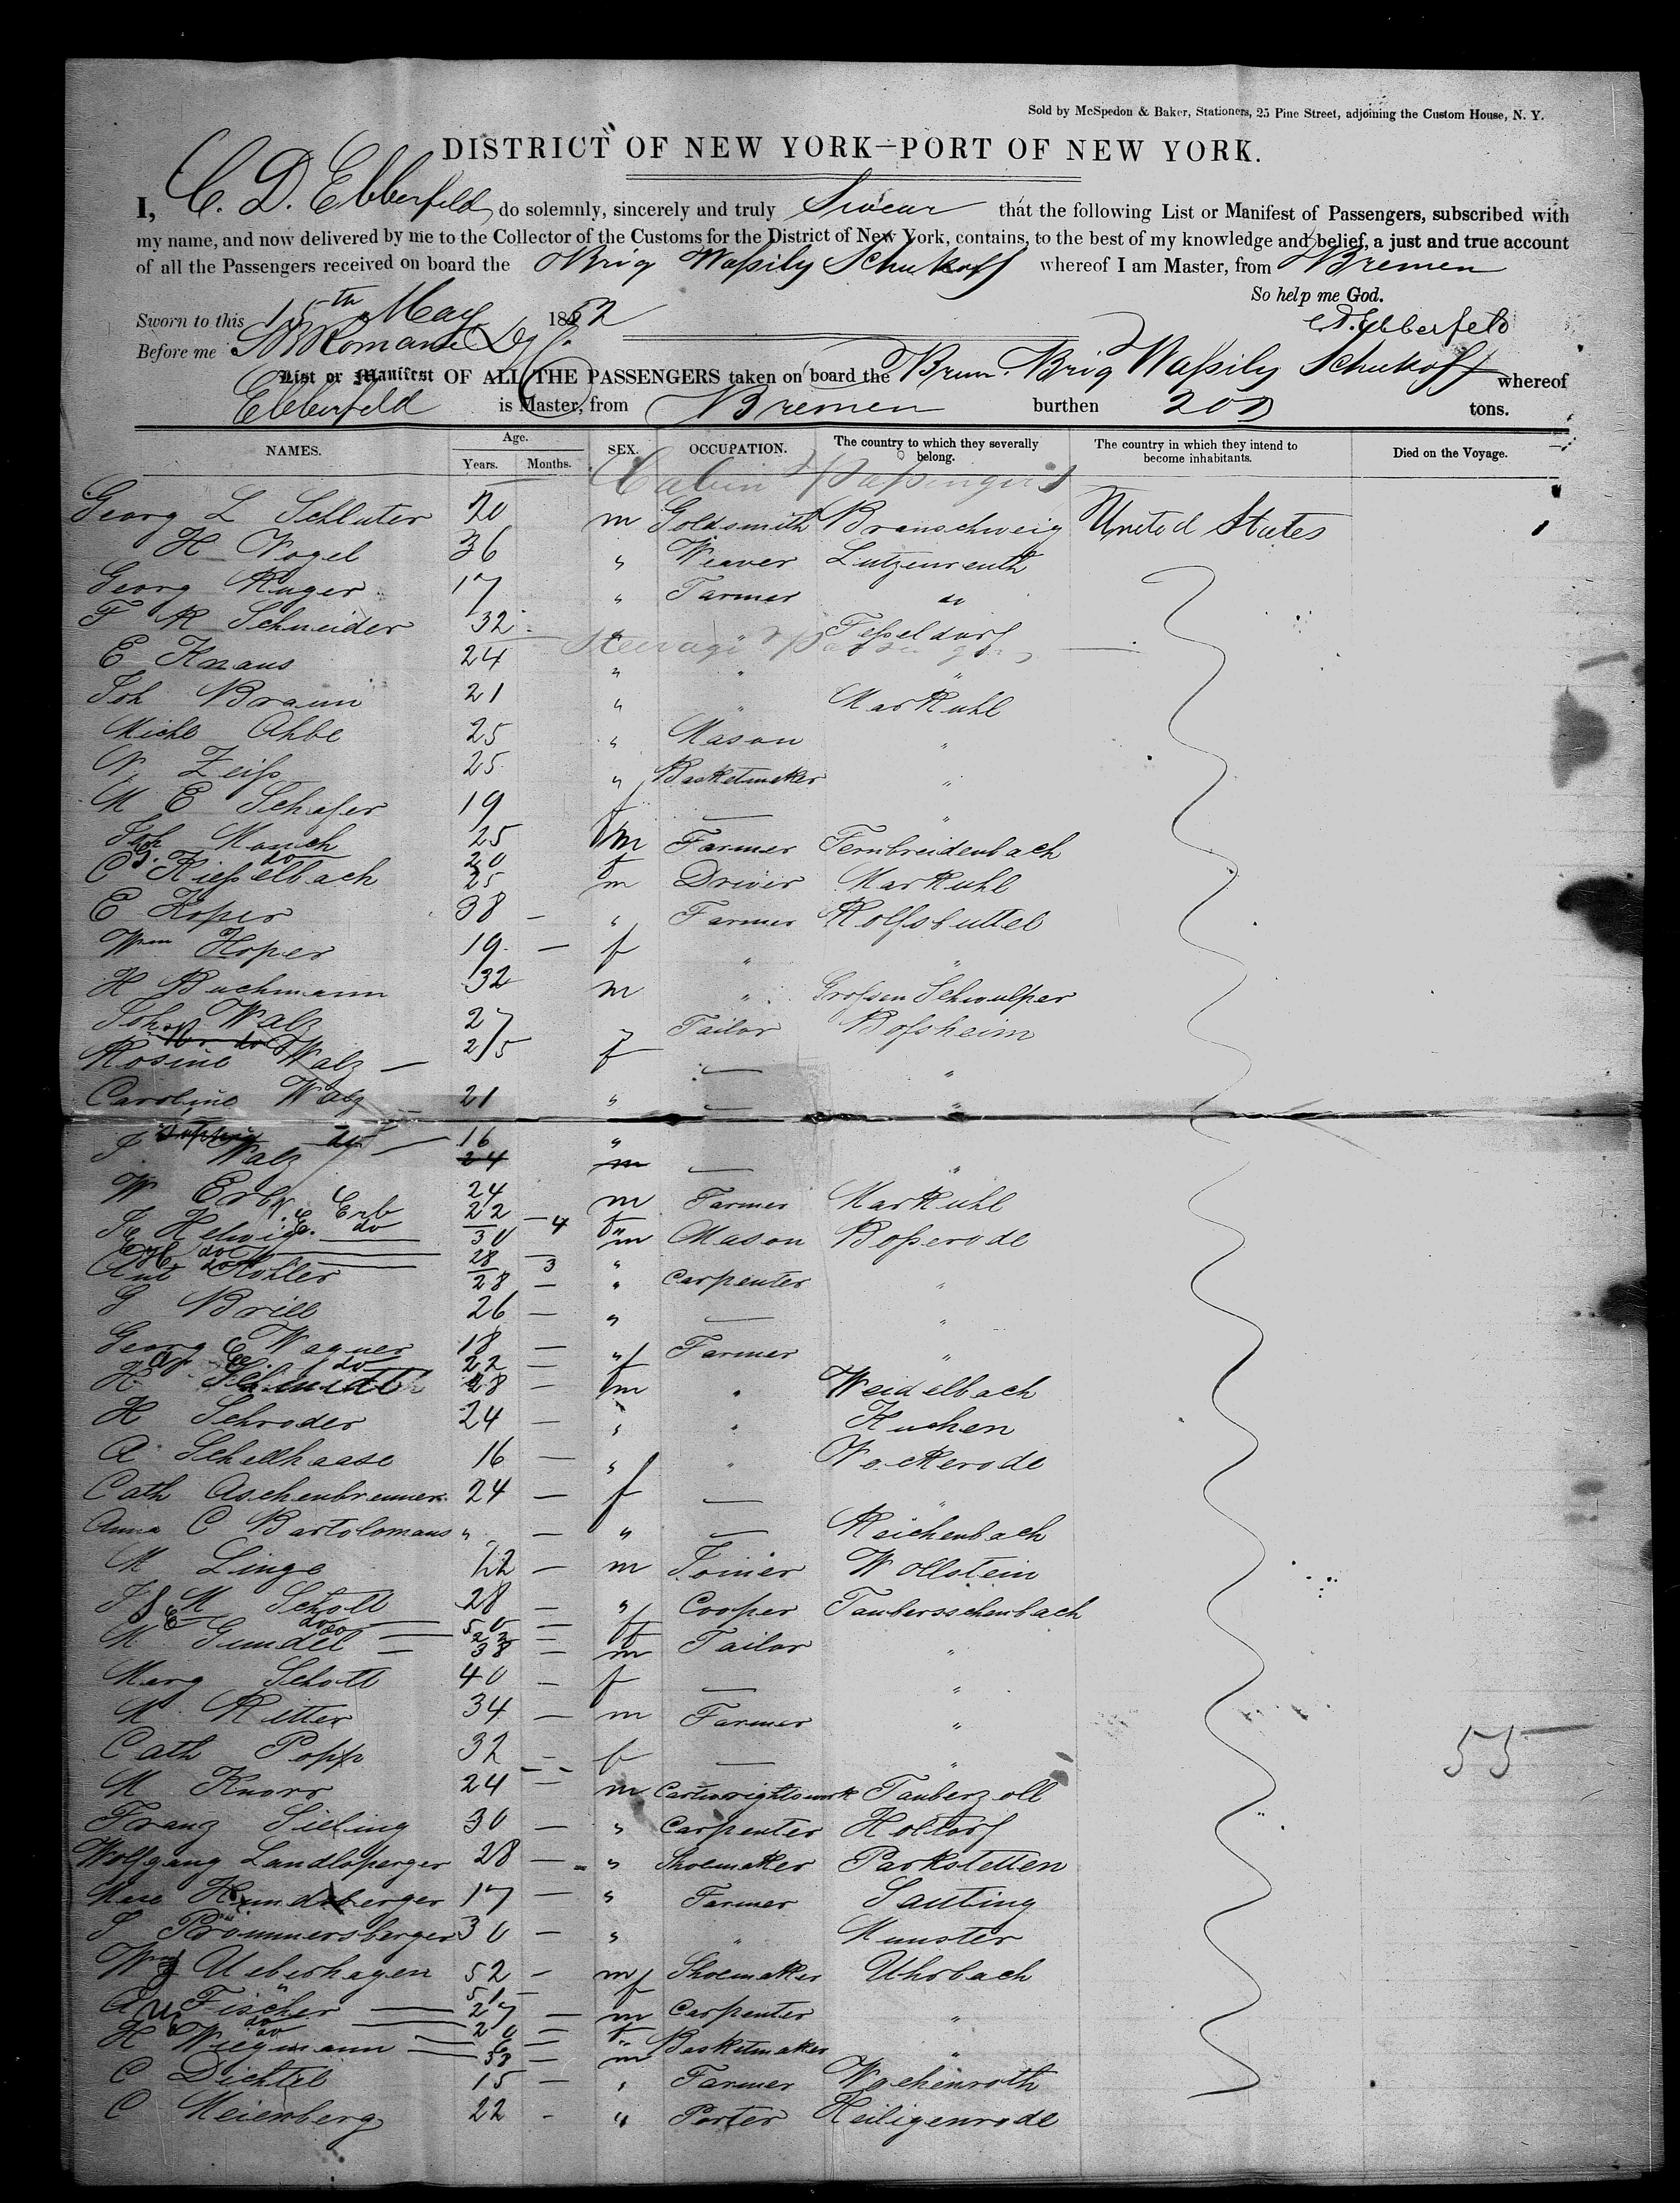 Sold by McSpedon & Baker, Stationers, 25 Pine Street, adjoining the Custom House, N. Y.
DISTRICT OF NEW YORK—PORT OF NEW YORK.
I, C. D. Ebberfeld do solemnly, sincerely and truly Swear that the following List or Manifest of Passengers, subscribed with
my name, and now delivered by me to the Collector of the Customs for the District of New York, contains, to the best of my knowledge and belief, a just and true account
of all the Passengers received on board the Brig Waſsily Schukoff whereof I am Master, from Bremen
So help me God.
Sworn to this 15th May 1852 C.D. Ebberfeld
Before me
List or Manifest OF ALL THE PASSENGERS taken on board the Brem. Brig Waſsily Schukoff whereof
Ebberfeld is Master, from Bremen burthen 200 tons.
NAMES. Age. Years. Months. SEX. OCCUPATION. The country to which they severally belong. The country in which they intend to become inhabitants. Died on the Voyage.
Cabin Paſsengers
Georg L Schluter 20 m Goldsmith Branschweig United States
H Vogel 36 " Weaver Lutzenreuth
Georg Ruger 17 " Farmer do
F R Schneider 32 " " Teſseldorf
Steerage
E Knaus 24 " " "
Joh Braun 21 " " MarKuhl
Michl Ahbe 25 " Mason "
N Zeiſs 25 " Basketmaker "
M E Schafer 19 f — "
Joh Manch 25 m Farmer Fernbreidenbach
do 20 f
C Kieſselbach 25 m Driver MarKuhl
E Hoper 38 — " Farmer Rolfsbuttel
Wm Hoper 19 — f " "
H Buchmann 32 m " Groſsen Schwulper
Joh Walz 27 " Tailor Boſsheim
Rosine Walz — 25 f — "
Caroline Walz 21 " — "
Walz 16 " — "
24 m
W Erb 24 m Farmer MarKuhl
Erb 22 f
Helwig 30 m Mason Boſserode
Kohler 28 — " Carpenter "
G Brill 26 — " — "
Georg Wagner 18 — " Farmer "
do 22 — f
H Schmidt 28 — m " Weidelbach
H Schroder 24 — " " Kuchen
A Schellhaase 16 — " " Vockerode
Cath Aschenbrenner 24 — f — "
Anna C Bartolomaus " — " — Reichenbach
M Linge 22 — m Joiner Wollstein
Schott 28 — " Cooper Taubersschenbach
M Gundel — 38 — m Tailor "
Marg Schott 40 — f — "
M Ritter 34 — m Farmer "
Cath Popp 32 — f — "
M Knorr 24 — m Cartwrightswork Tauberzoll
Franz Sieling 30 — " Carpenter Holtorf
Wolfgang Landlsperger 28 — " Shoemaker Parkstetten
17 — " Farmer Sauting
30 — " " Munster
Ueberhagen 52 — m Shoemaker Uhrbach
51 f
Fischer — 27 — m Carpenter "
do 20 — f
H Wiegmann — m Basketmaker "
C Dichtel 15 — " Farmer Wachenroth
C Meienberg 22 - " Porter Heiligenrode
55